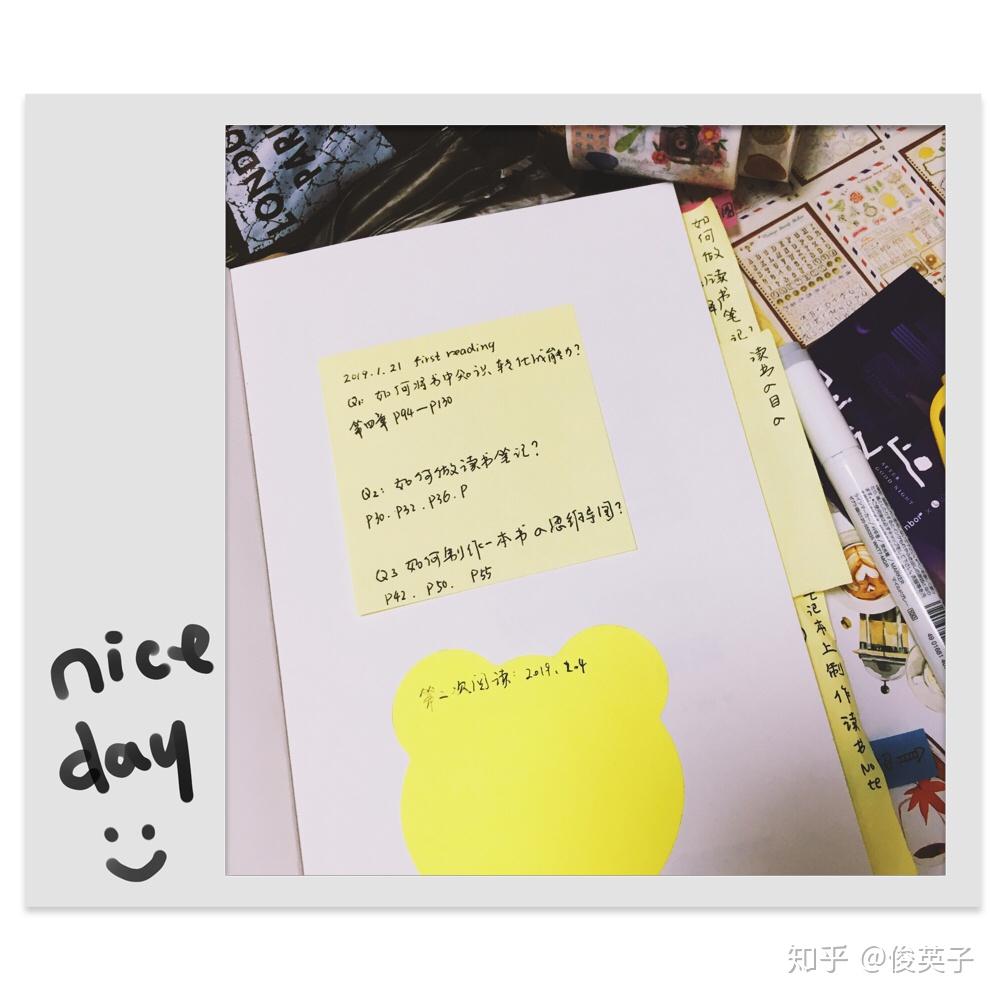 LONDO
PARI
2019.1.21 first reading
Q1: 如何将书中知识转化成能力?
第四章 P94—P130
Q2: 如何做读书笔记?
P30. P32. P36. P
Q3 如何制作一本书の思维导图?
P42. P50. P55
第二次阅读: 2019.
如何做读书笔记?
读书の目の
记本上制作读书Note
AFTER
GOOD NIGHT
MARKER
nice
day
知乎 @俊英子